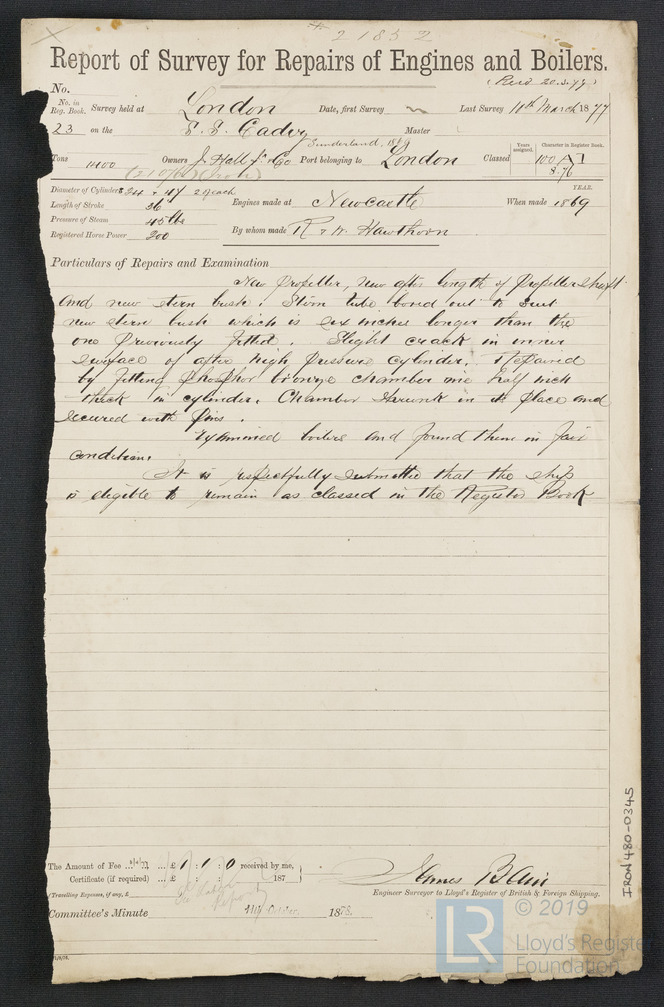 2185 2
Report of Survey for Repairs of Engines and Boilers.
(Recd 20.3.77)
No.
No. in Reg. Book. Survey held at London Date, first Survey Last Survey 11th March 1877
23 on the S.S. Cadiz Master
Sunderland, 1869
Tons 1400 Owners J. Hall Jr & Co Port belonging to London Classed Years assigned. Character in Register Book.
100 A1
8.76
Diameter of Cylinders 24 & 47 2 of each YEAR.
Length of Stroke 36 Engines made at Newcastle When made 1869
Pressure of Steam 45 lbs
Registered Horse Power 200 By whom made R & W. Hawthorn
Particulars of Repairs and Examination
New propeller, new after length of propeller shaft
and new stern bush. Stern tube bored out to suit
new stern bush which is six inches longer than the
one previously fitted. Slight crack in inner
surface of after high pressure cylinder. Repaired
by fitting phosphor bronze chamber one half inch
thick in cylinder. Chamber shrunk in its place and
secured with pins.
Examined boilers and found them in fair
condition.
It is respectfully submitted that the ship
is eligible to remain as classed in the Register Book
The Amount of Fee £ 1 : 1 : 0 received by me,
Certificate (if required) £ : : 187
James Blair
(Travelling Expenses, if any, £ Engineer Surveyor to Lloyd's Register of British & Foreign Shipping.
Report
Committee's Minute 187
IRON 480-0345
LR
© 2019
Lloyd's Register
Foundation